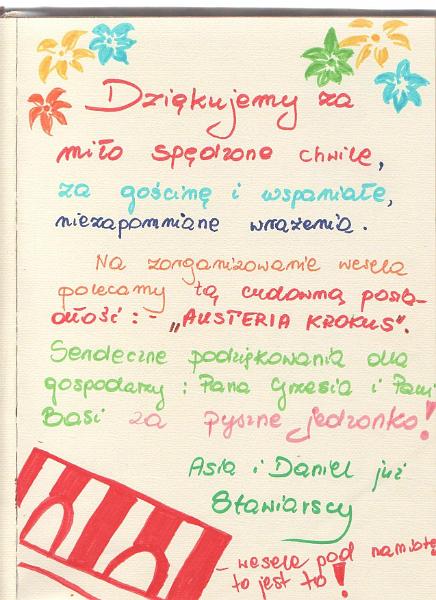 Dziękujemy za
miło spędzone chwile,
za gościnę i wspaniałe,
niezapomniane wrażenia.
Na zorganizowanie wesela
polecamy tą cudowną posia-
dłość: - „AUSTERIA KROKUS".
Serdeczne podziękowania dla
gospodarzy: Pana Grzesia i Pani
Basi za pyszne jedzonko!
Asia i Daniel już
Stawiarscy
- wesele pod namiotem
to jest to!